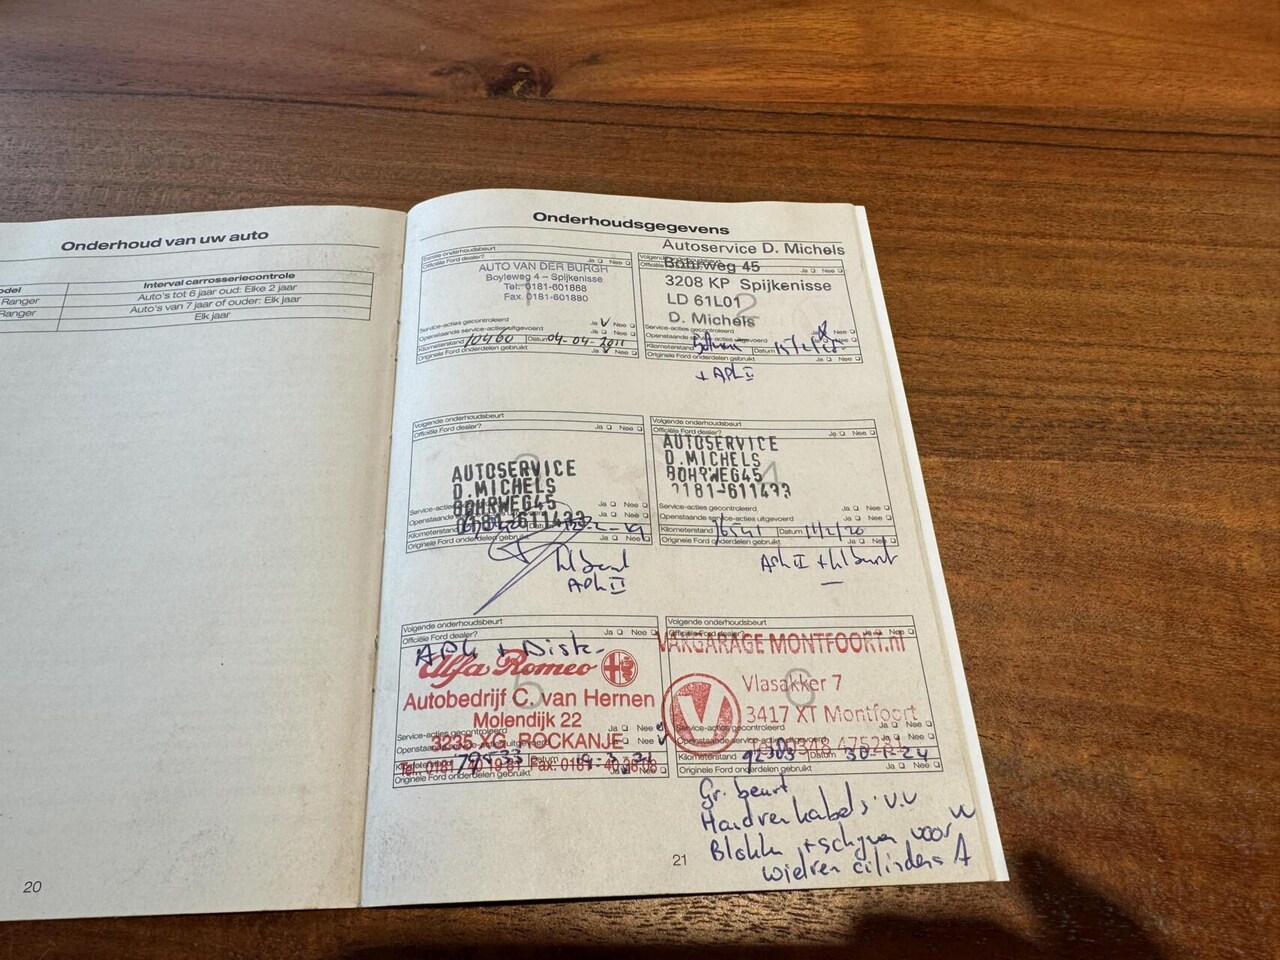 Onderhoud van uw auto
odel
Interval carrosseriecontrole
Ranger
Auto's tot 6 jaar oud: Elke 2 jaar
Ranger
Auto's van 7 jaar of ouder: Elk jaar
Elk jaar
20
Onderhoudsgegevens
Eerste onderhoudsbeurt
Officiële Ford dealer? Ja Nee
AUTO VAN DER BURGH
Boyleweg 4 – Spijkenisse
Tel. 0181-601888
Fax. 0181-601880
1
Service-acties gecontroleerd Ja Nee
Openstaande service-acties uitgevoerd
Kilometerstand 10460 Datum 04-04-2011
Originele Ford onderdelen gebruikt Ja Nee
Autoservice D. Michels
Bohrweg 45
3208 KP Spijkenisse
LD 61L01
D. Michels
2
Service-acties gecontroleerd
Openstaande service-acties uitgevoerd
Kilometerstand Datum
Originele Ford onderdelen gebruikt Ja Nee
+ APK II
Volgende onderhoudsbeurt
Officiële Ford dealer? Ja Nee
3
AUTOSERVICE
D.MICHELS
BOHRWEG45
0181-611433
Ja Nee
Originele Ford onderdelen gebruikt Ja Nee
APK II
Volgende onderhoudsbeurt
Officiële Ford dealer? Ja Nee
AUTOSERVICE
D.MICHELS
BOHRWEG45
0181-611433
4
Service-acties gecontroleerd Ja Nee
Openstaande service-acties uitgevoerd Ja Nee
Kilometerstand 76541 Datum 11/2/20
Originele Ford onderdelen gebruikt Ja Nee
APK II + kl beurt
Volgende onderhoudsbeurt
Officiële Ford dealer? Ja Nee
APK + Distr
Alfa Romeo
5
Autobedrijf C. van Hernen
Molendijk 22
Service-acties gecontroleerd Ja Nee
3235 XG ROCKANJE
Originele Ford onderdelen gebruikt Ja Nee
Volgende onderhoudsbeurt
Officiële Ford dealer? Ja Nee
VAKGARAGE MONTFOORT.nl
6
Vlasakker 7
3417 XT Montfoort
Service-acties gecontroleerd Ja Nee
Kilometerstand 92303 Datum 30-1-24
Originele Ford onderdelen gebruikt Ja Nee
Gr. beurt
Handremkabels v.v
Blokken + schijven voor
wielrem cilinders A
21